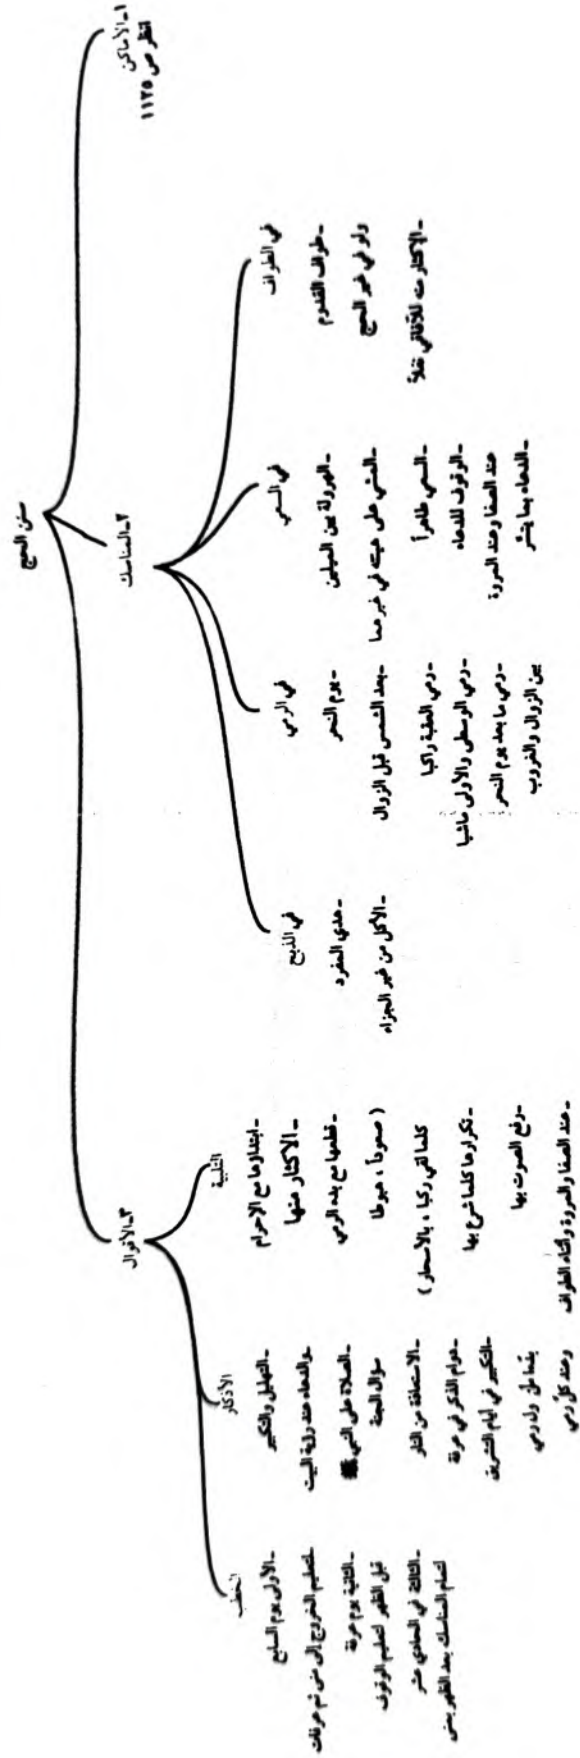 سنن الحج
١-الأماكن
انظر ص ١١٢٥
٢-المناسك
في الطواف
-طواف القدوم
ولو في غير الحج
-الإكثار للآفاقي نفلاً
في السعي
-الهرولة بين الميلين
-المشي على هينة في غيرهما
-السعي طاهراً
-الوقوف للدعاء
عند الصفا وعند المروة
-الدعاء بما يتيسّر
في الرمي
-يوم النحر
-بعد الشمس قبل الزوال
-رمي العقبة راكبا
-رمي الوسطى والأولى ماشيا
-رمي ما بعد يوم النحر
بين الزوال والغروب
في الذبح
-هدي المفرد
-الأكل من غير الجزاء
٣-الأقوال
التلبية
-ابتداؤها مع الإحرام
-الاكثار منها
-قطعها مع بدء الرمي
( صعوداً ، هبوطا
كلما لقي ركبا ، بالأسحار )
-تكرارها كلما شرع بها
-رفع الصوت بها
-عند الصفا والمروة وأثناء الطواف
الأذكار
-التهليل والتكبير
والدعاء عند رؤية البيت
-الصلاة على النبي ﷺ
سؤال الجنة
-الاستعاذة من النار
-دوام الذكر في عرفة
-التكبير في أيام التشريق
رمي
وعند كل رمي
الخطب
-الأولى يوم السابع
لتعليم الخروج إلى منى ثم عرفات
-الثانية يوم عرفة
قبل الظهر لتعليم الوقوف
-الثالثة في الحادي عشر
لتمام المناسك بعد الظهر بمنى